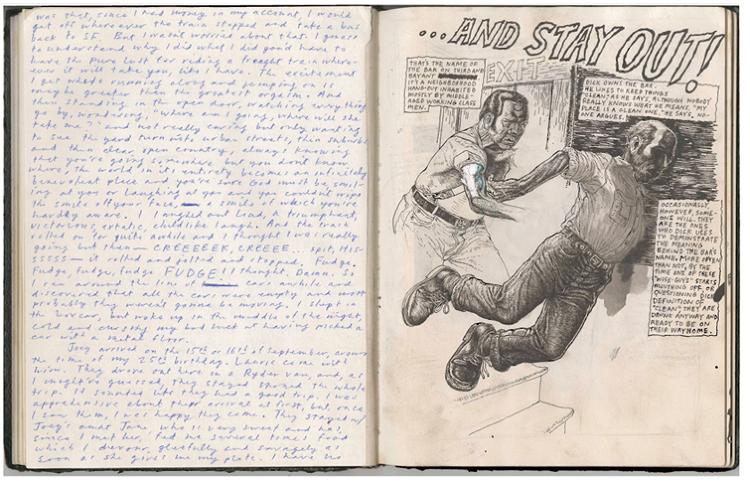 was that, since I had money in my account, I would
get off whereever the train stopped and take a bus
back to SF. But I wasnt worried about that. I guess
to understand why I did what I did you'd have to
have the pure lust for riding a freight train where-
ever it will take you, like I have. The excitement
I get when running along and jumping on is
maybe greater then the greatest orgasm. And
then standing in the open door, watching everything
go by, wondering, "where am I going, where will she
take me?" and not really caring but only wanting
to see the yard, first, urban streets, then suburbs
and then clear, open country, always knowing
that you're going somewhere but you don't know
where, the world in its entirety becomes an infinitely
benevolent place and you're sure God must be smil-
ing at you or laughing at you and you couldn't wipe
the smile off your face, a smile of which you're
hardly aware. I laughed out loud, a triumphant,
victorious, ecstatic, childlike laugh. And the train
rolled on for quite awhile and I thought I was really
going but then— CREEEEEK, CREEEE.. spit, HIS-
SSSSS— it rolled and jolted and stopped. Fudge,
Fudge, fudge, fudge FUDGE!!! I thought. Damn. So
I ran around the line of cars awhile and
discovered that all the cars were empty and most
probably they werent gonna be moving. I slept in
the boxcar, but woke up in the middle of the night,
cold and cursing my bad luck at having picked a
car with a metal floor.
Joey arrived on the 15th or 16th of September, around
the time of my 25th birthday. Lance came with
him. They drove out here in a Ryder van, and, as
I might've guessed, they stayed stoned the whole
trip. It sounded like they had a good trip. I was
apprehensive about their arrival at first, but, once
I saw them, I was happy they came. They stayed w/
Joey's aunt Jane, who is very sweet and has,
since I met her, fed me several times food
which I devour gleefully and savagely as
soon as she gives me my plate. I have no
...AND STAY OUT!
THAT'S THE NAME OF
THE BAR ON THIRD AND
BRYANT
IT'S A NEIGHBORHOOD
HANG-OUT INHABITED
MOSTLY BY MIDDLE-
AGED WORKING CLASS
MEN.
EXIT
DICK OWNS THE BAR.
HE LIKES TO KEEP THINGS
"CLEAN," AS HE SAYS, ALTHOUGH NOBODY
REALLY KNOWS WHAT HE MEANS. "MY
PLACE IS A CLEAN ONE," HE SAYS, NO-
ONE ARGUES.
OCCASIONALLY,
HOWEVER, SOME-
ONE WILL. THEY
ARE THE ONES
WHO DICK USES
TO DEMONSTRATE
THE MEANING
BEHIND THE BAR'S
NAME. MORE OFTEN
THAN NOT, BY THE
TIME ONE OF THESE
"WISE GUYS" STARTS
MOUTHING OFF OR
QUESTIONING DICK'S
DEFINITION OF
"CLEAN," THEY ARE
DRUNK ANYWAY AND
READY TO BE ON
THEIR WAY HOME.